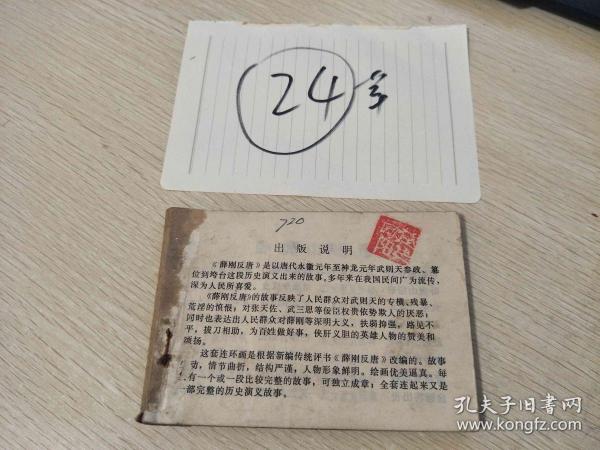 24号
720
出版说明
《薛刚反唐》是以唐代永徽元年至神龙元年武则天参政、篡
位到垮台这段历史演义出来的故事，多年来在我国民间广为流传，
深为人民所喜爱。
《薛刚反唐》的故事反映了人民群众对武则天的专横、残暴、
荒淫的愤恨；对张天佐、武三思等佞臣权贵依势欺人的厌恶；
同时也表达出人民群众对薛刚等深明大义，扶弱抑强，路见不
平，拔刀相助，为百姓做好事，侠肝义胆的英雄人物的赞美和
颂扬。
这套连环画是根据新编传统评书《薛刚反唐》改编的。故事
动，情节曲折，结构严谨，人物形象鲜明。绘画优美逼真。每
有一个或一段比较完整的故事，可独立成章；全套连起来又是
一部完整的历史演义故事。
孔夫子旧书网
kongfz.com